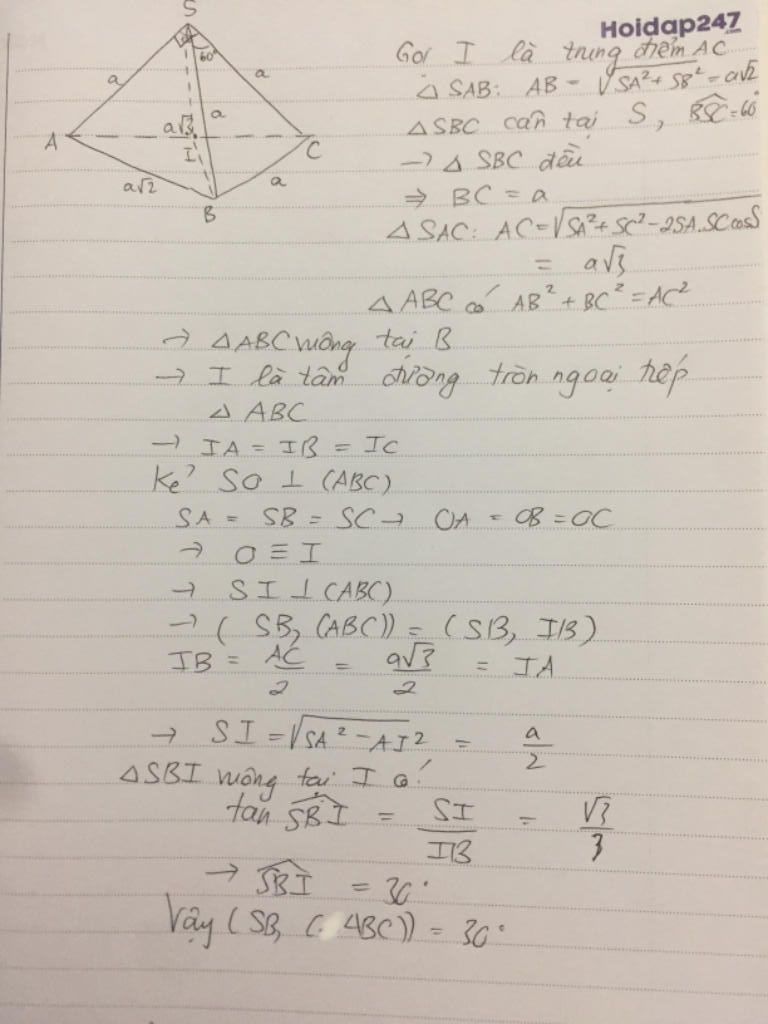 Hoidap247
S
60°
a
a
a
a√3
A
I
C
a√2
a
B
Gọi I là trung điểm AC
△ SAB: AB = √SA² + SB² = a√2
△ SBC cân tại S, BSC = 60°
→ △ SBC đều
⇒ BC = a
△ SAC: AC = √SA² + SC² - 2SA.SC cosS
= a√3
△ ABC có AB² + BC² = AC²
→ △ABC vuông tại B
→ I là tâm đường tròn ngoại tiếp
△ ABC
→ IA = IB = IC
Kẻ SO ⊥ (ABC)
SA = SB = SC → OA = OB = OC
→ O ≡ I
→ SI ⊥ (ABC)
→ ( SB, (ABC)) = (SB, IB)
IB = AC/2 = a√3/2 = IA
→ SI = √SA² - AI² = a/2
△SBI vuông tại I có
tan SBI = SI/IB = √3/3
→ SBI = 30°
Vậy (SB, (ABC)) = 30°